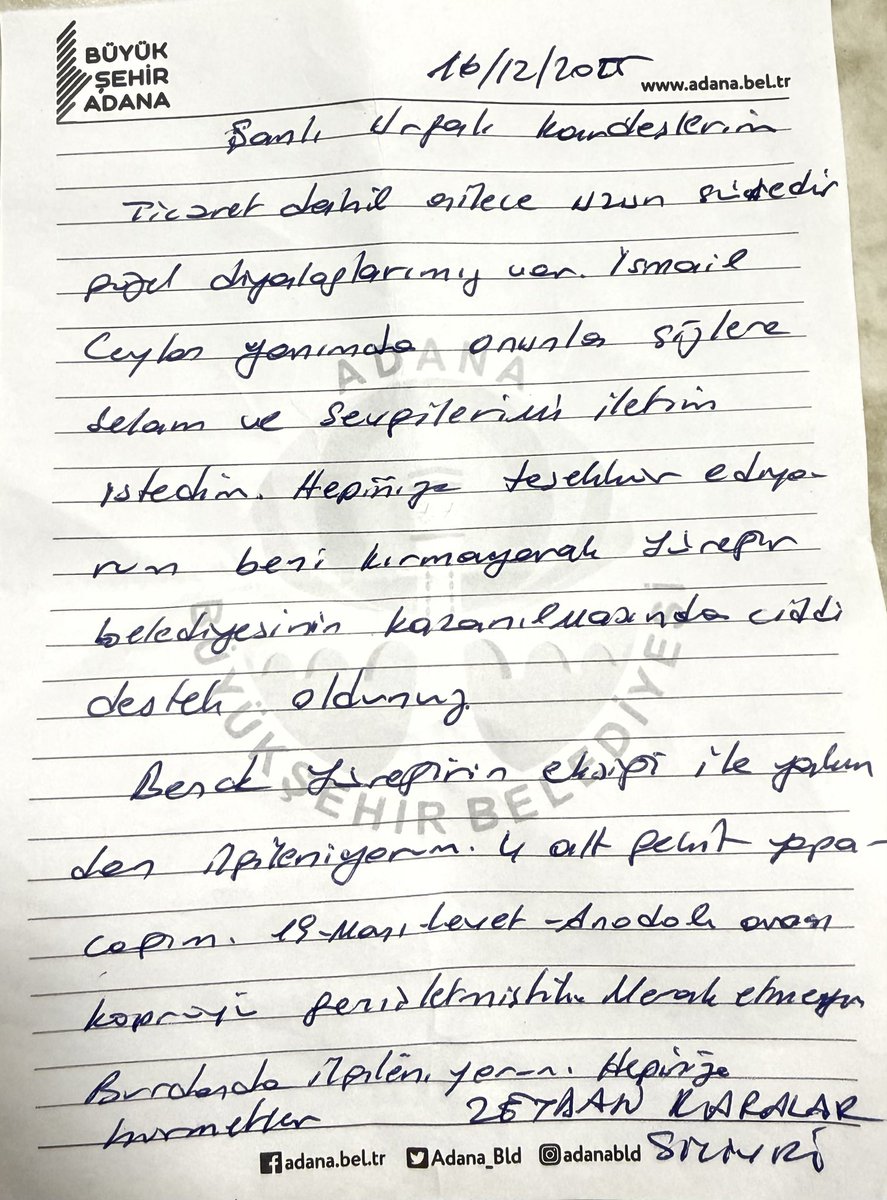 BÜYÜK
ŞEHİR
ADANA
16/12/2025
www.adana.bel.tr
Şanlı Urfalı kardeslerim
Ticaret dahil ailece uzun süredir
güzel diyaloglarımız var. İsmail
Ceylan yanımda onunla sizlere
selam ve sevgilerimi iletim
istedim. Hepinize tesekkur ediyo-
rum beni kırmayarak Yüregir
belediyesinin kazanılmasında ciddi
destek oldunuz.
Bende Yüregirin eksigi ile yakın
dan ilgileniyorum. 4 alt gecit yapa-
cagım. 19-Mayıs Levent-Anadolu arası
köprüyü genisletmistik. Merak etmeyin
Burdanda ilgileniyorum. Hepinize
hurmetler
ZEYDAN KARALAR
SİLİVRİ
ADANA
BÜYÜKŞEHİR BELEDİYESİ
adana.bel.tr Adana_Bld adanabld